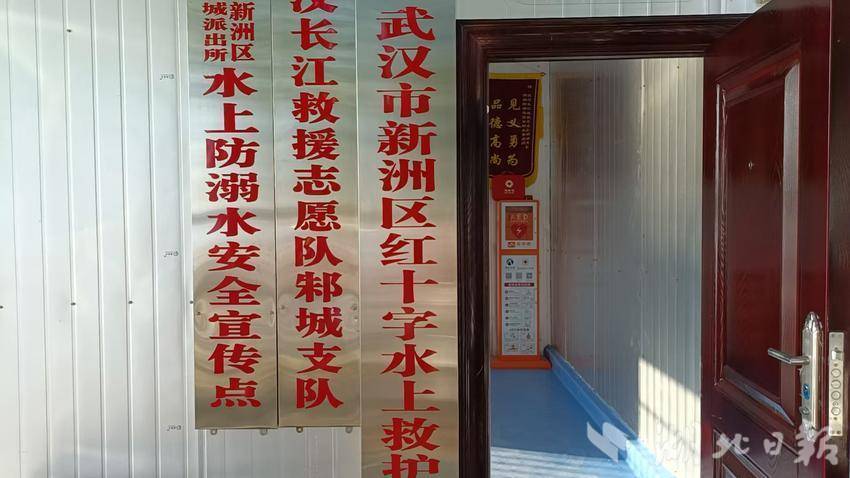 武汉市新洲区红十字水上救护
汉长江救援志愿队邾城支队
新洲区
城派出所
水上防溺水安全宣传点
见义勇为
品德高尚
AED
湖北日报